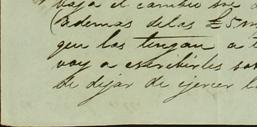 baja el cambio sre
(Ademas delas £5m
que los tengan a
voy a escribirles so
se dejar de ejercer l